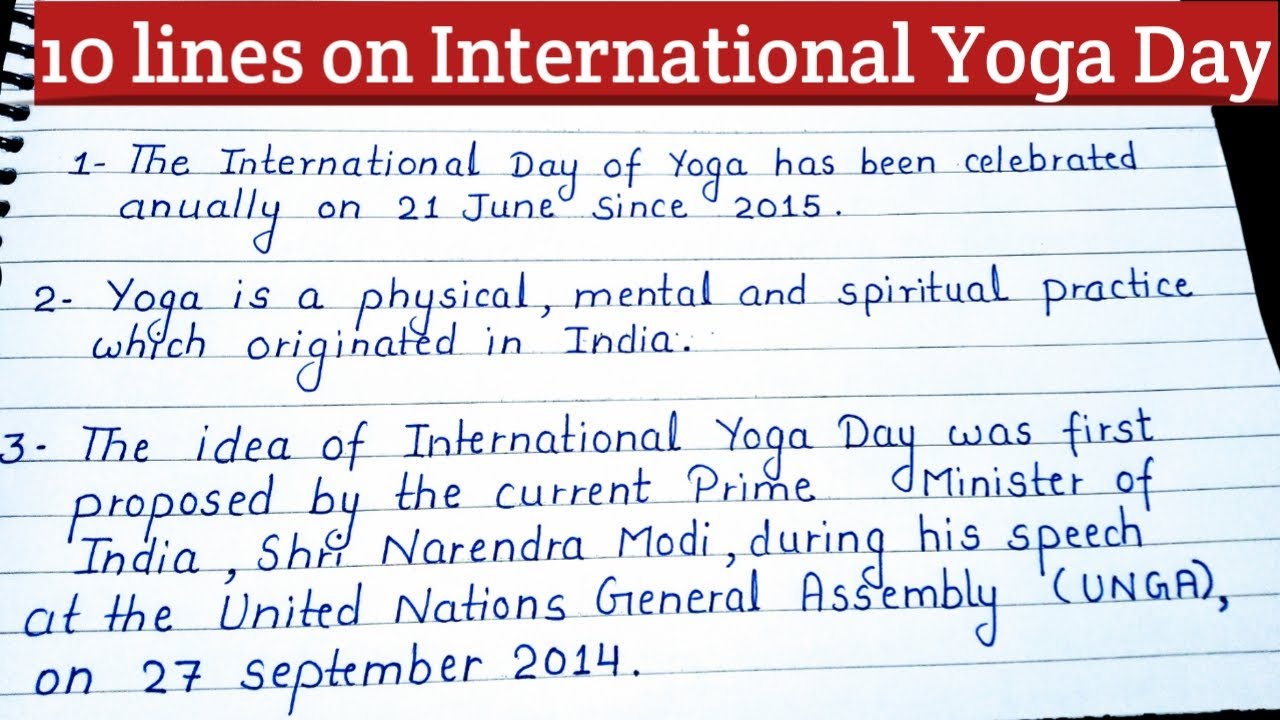 10 lines on International Yoga Day
1- The International Day of Yoga has been celebrated
anually on 21 June since 2015.
2- Yoga is a physical, mental and spiritual practice
which originated in India.
3- The idea of International Yoga Day was first
proposed by the current Prime Minister of
India, Shri Narendra Modi, during his speech
at the United Nations General Assembly (UNGA),
on 27 september 2014.